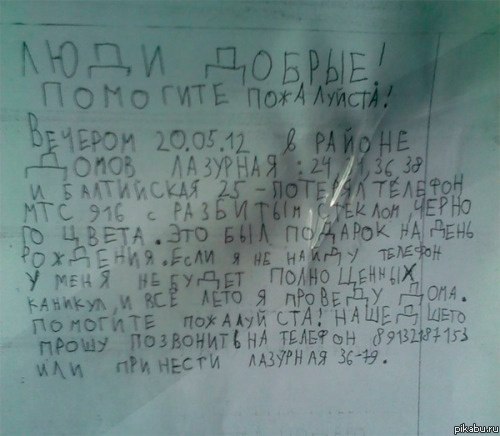 ЛЮДИ ДОБРЫЕ!
ПОМОГИТЕ ПОЖАЛУЙСТА!
ВЕЧЕРОМ 20.05.12 в РАЙОНЕ
ДОМОВ ЛАЗУРНАЯ : 24, 36 38
И БАЛТИЙСКАЯ 25 - ПОТЕРЯЛ ТЕЛЕФОН
МТС 916 с РАЗБИТЫМ СТЕКЛОМ, ЧЕРНО
ГО ЦВЕТА. ЭТО БЫЛ ПОДАРОК НА ДЕНЬ
РОЖДЕНИЯ. ЕСЛИ Я НЕ НАЙДУ ТЕЛЕФОН
У МЕНЯ НЕ БУДЕТ ПОЛНОЦЕННЫХ
КАНИКУЛ, И ВСЁ ЛЕТО Я ПРОВЕДУ ДОМА.
ПОМОГИТЕ ПОЖАЛУЙСТА! НАШЕДШЕГО
ПРОШУ ПОЗВОНИТЬ НА ТЕЛЕФОН 89132187153
ИЛИ ПРИНЕСТИ ЛАЗУРНАЯ 36-79.
pikabu.ru